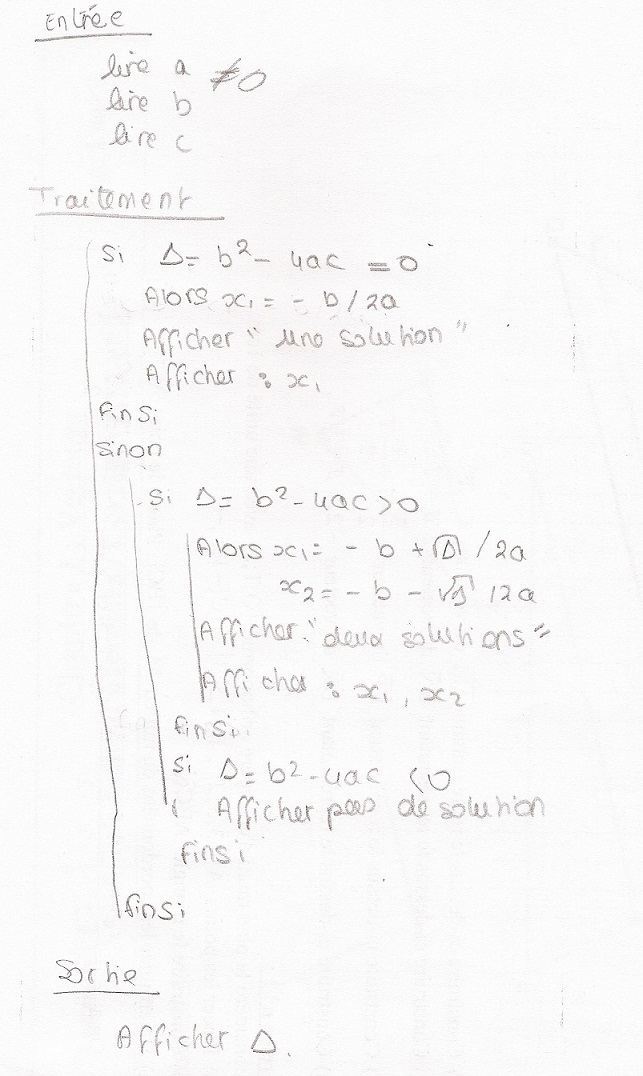 Entrée
lire a ≠0
lire b
lire c
Traitement
Si Δ= b²- 4ac = 0
Alors x₁ = - b / 2a
Afficher " une solution "
Afficher : x₁
fin Si
sinon
Si Δ= b²- 4ac > 0
Alors x₁ = - b + √Δ / 2a
x₂ = - b - √Δ / 2a
Afficher : "deux solutions"
Afficher : x₁ , x₂
finSi.
Si Δ= b²- 4ac < 0
Afficher pas de solution
finsi
finsi
Sortie
Afficher Δ.